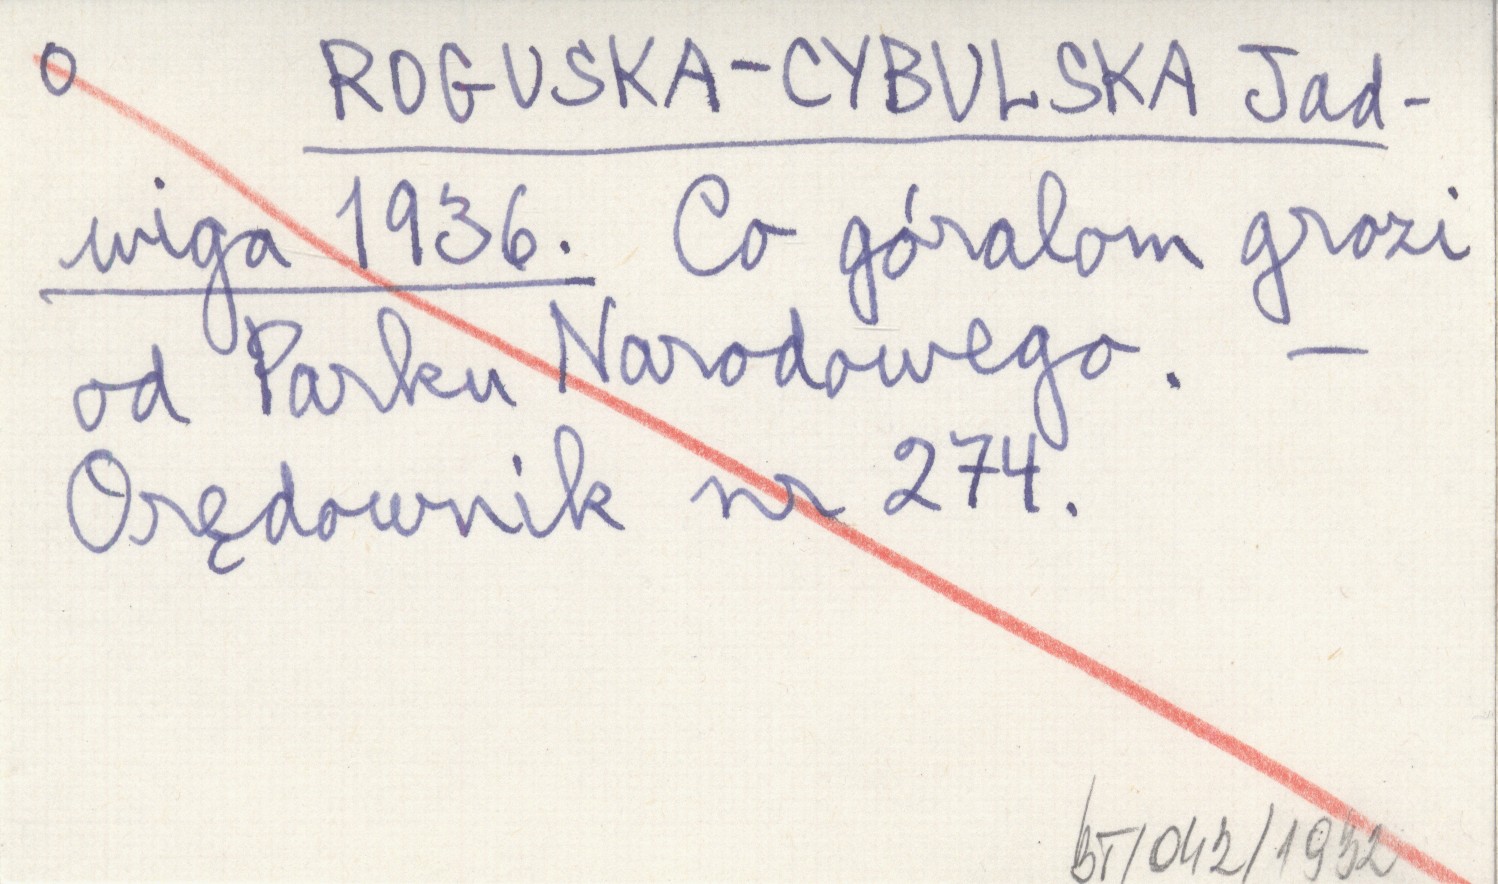 O ROGUSKA-CYBULSKA Jad-
wiga 1936. Co góralom grozi
od Parku Narodowego. —
Orędownik nr 274.
BT/042/1932